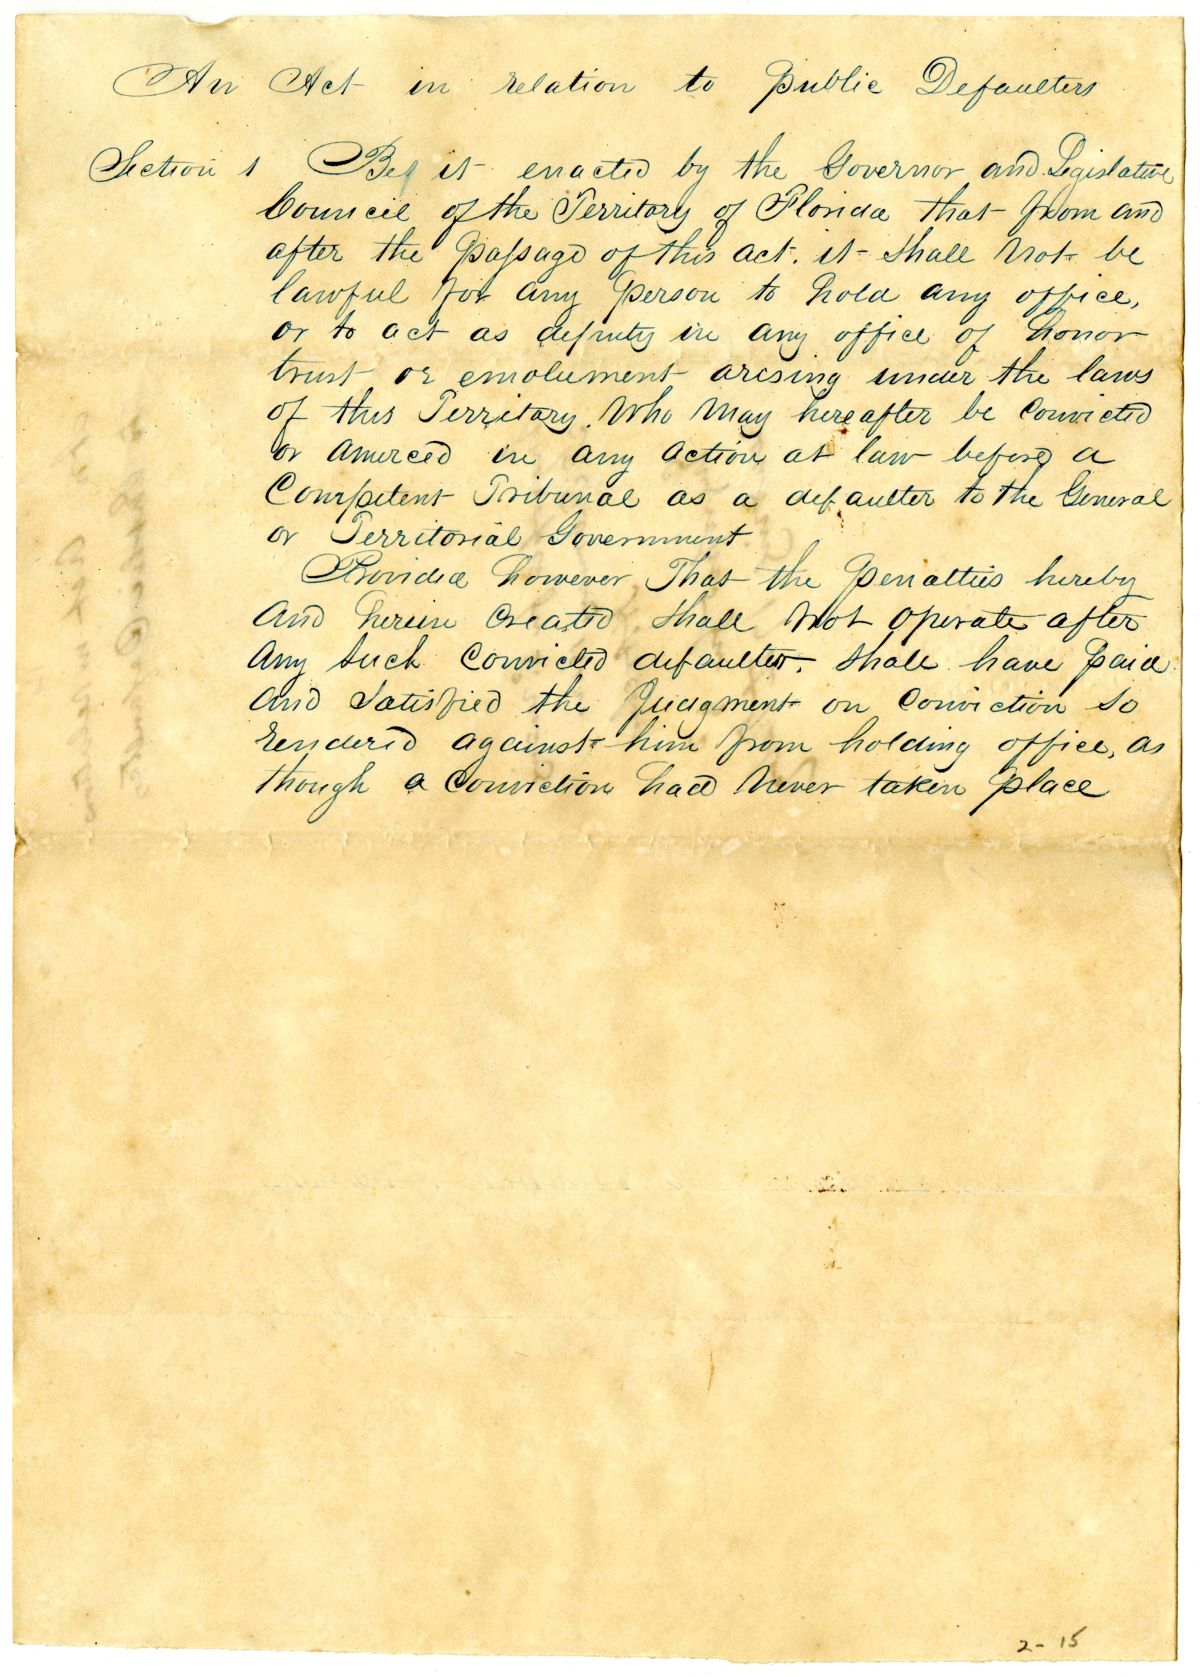 An Act in relation to Public Defaulters
Section 1 Be it enacted by the Governor and Legislative
Council of the Territory of Florida that from and
after the passage of this act. it shall Not be
lawful for any Person to hold any office,
or to act as deputy in any office of honor
trust or emolument arising under the laws
of this Territory. Who May hereafter be Convicted
or amerced in any action at law before a
Competent Tribunal as a defaulter to the General
or Territorial Government
Provided however, That the Penalties hereby
And herein Created shall Not Operate after
Any such Convicted defaulter. shall have Paid
and Satisfied the Judgment on Conviction so
rendered against him from holding office, as
though a Conviction had Never taken Place
2-15